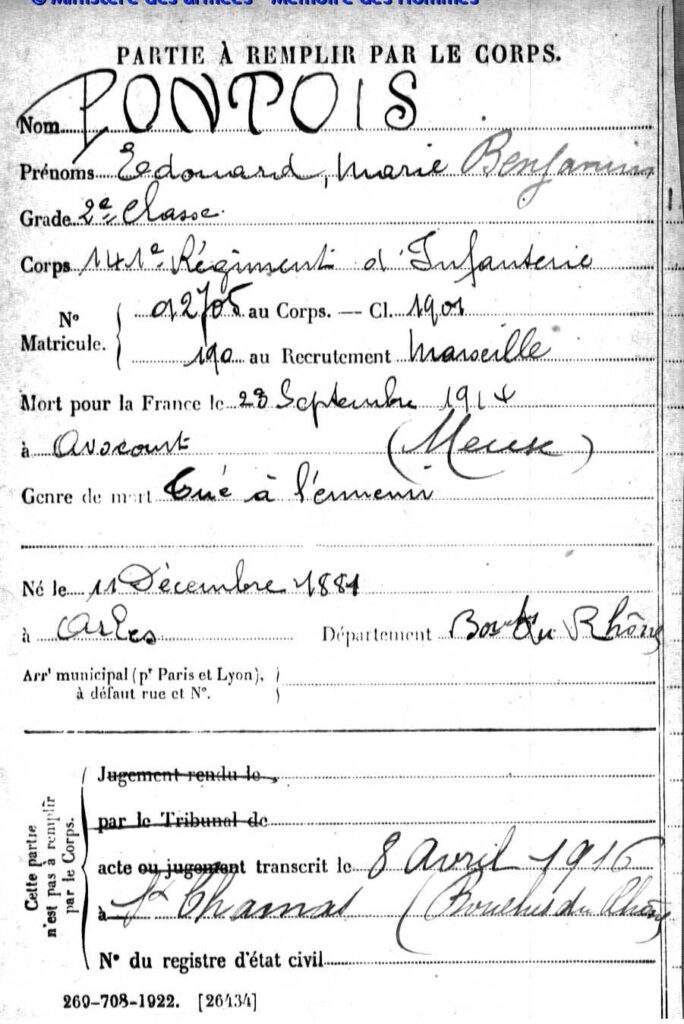 © Ministère des armées - Mémoire des Hommes
PARTIE À REMPLIR PAR LE CORPS.
Nom PONTOIS
Prénoms Edouard, Marie Benjamin
Grade 2e Classe
Corps 141e Régiment d'Infanterie
No Matricule. 
02705 au Corps. — Cl. 1901
190 au Recrutement Marseille
Mort pour la France le 28 Septembre 1914
à Avocourt (Meuse)
Genre de mort Tué à l'ennemi
Né le 11 Décembre 1881
à Arles Département Bouches du Rhône
Arrt municipal (pr Paris et Lyon),
à défaut rue et No.
Cette partie
n'est pas à remplir
par le Corps.
Jugement rendu le
par le Tribunal de
acte ou jugement transcrit le 8 Avril 1916
à St Chamas (Bouches du Rhône)
No du registre d'état civil
269-708-1922. [26434]